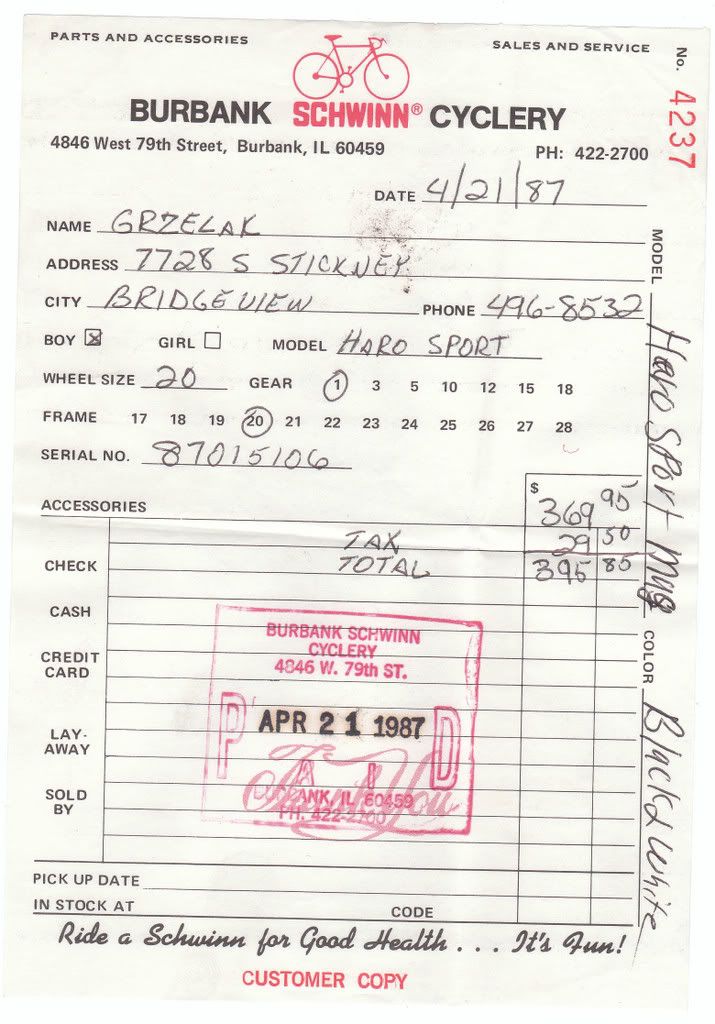 PARTS AND ACCESSORIES
SALES AND SERVICE
No. 4237
BURBANK SCHWINN® CYCLERY
4846 West 79th Street, Burbank, IL 60459
PH: 422-2700
DATE 4/21/87
NAME GRZELAK
ADDRESS 7728 S STICKNEY
CITY BRIDGEVIEW PHONE 496-8532
BOY ☒ GIRL ☐ MODEL HARO SPORT
WHEEL SIZE 20 GEAR 1 3 5 10 12 15 18
FRAME 17 18 19 20 21 22 23 24 25 26 27 28
SERIAL NO. 87015106
ACCESSORIES
$ 369 95
TAX 29 50
CHECK TOTAL 395 85
CASH
CREDIT
CARD
LAY-
AWAY
SOLD
BY
BURBANK SCHWINN
CYCLERY
4846 W. 79th ST.
PAID
APR 21 1987
Thank You
BANK, IL 60459
PH. 422-2700
PICK UP DATE
IN STOCK AT CODE
Ride a Schwinn for Good Health . . . It's Fun!
CUSTOMER COPY
MODEL Haro Sport Mag
COLOR Black & White